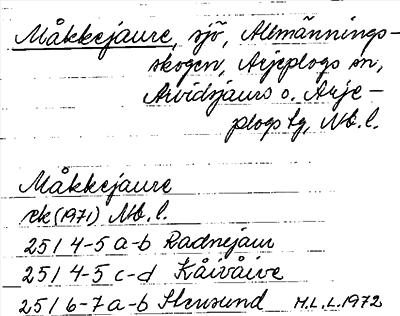 Måkkejaure, sjö, Allmännings-
skogen, Arjeplogs sn,
Arvidsjaurs o. Arje-
plogs tg, Nb. l.
Måkkejaure
rek (1971) Nb. l.
25I 4-5 a-b Radnejaur
25I 4-5 c-d Kåivåive
25I 6-7 a-b Slensund M.L.L. 1972